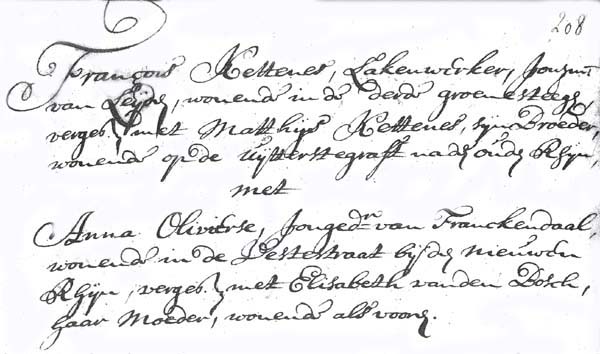 208
François Kettenes, Lakenwercker, Jongm
van Leyde, wonende in de derde groenesteege,
verges. met Matthijs Kettenes, syn Broeder,
wonende op de Uytterstegraft na de oude Rhyn,
met
Anna Olivierse, Jongedr van Franckendaal
wonende in de Vestestraat by de nieuwen
Rhyn, verges. met Elisabeth vanden Bosch,
haar Moeder, wonende als voore.